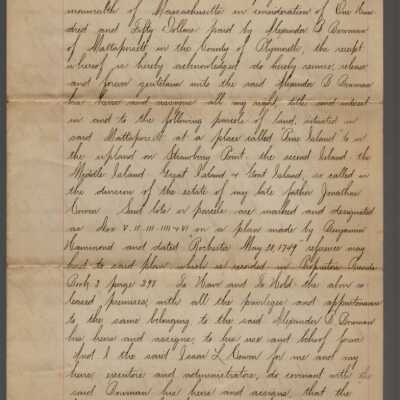 monwealth of Massachusetts in consideration of One Hun
dred and Fifty Dollars paid by Alexander B Bowman
of Mattapoisett in the County of Plymouth, the receipt
whereof is hereby acknowledged, do hereby remise, release
and forever quitclaim unto the said Alexander B Bowman
his heirs and assigns all my right, title and interest
in and to the following parcels of land, situated in
said Mattapoisett at a place called "Pine Island" to in
the upland on Strawberry Point, the second Island, the
Middle Island, Great Island & Goat Island, so called in
the division of the estate of my late father Jonathan
Said lots or parcels are marked and designated
as on a plan made by Benjamin
Hammond and dated Rochester May 20, 1749 reference may
be had to said plan which is recorded in Proprietors Records
Book 3 page 298 To Have and to Hold the above re
leased premises, with all the privileges and appurtenances
to the same belonging, to the said Alexander B Bowman
his heirs and assigns, to his use and behoof forever
And I the said Isaac L for me and my
heirs, executors and administrators, do covenant with the
said Bowman his heirs and assigns, that the